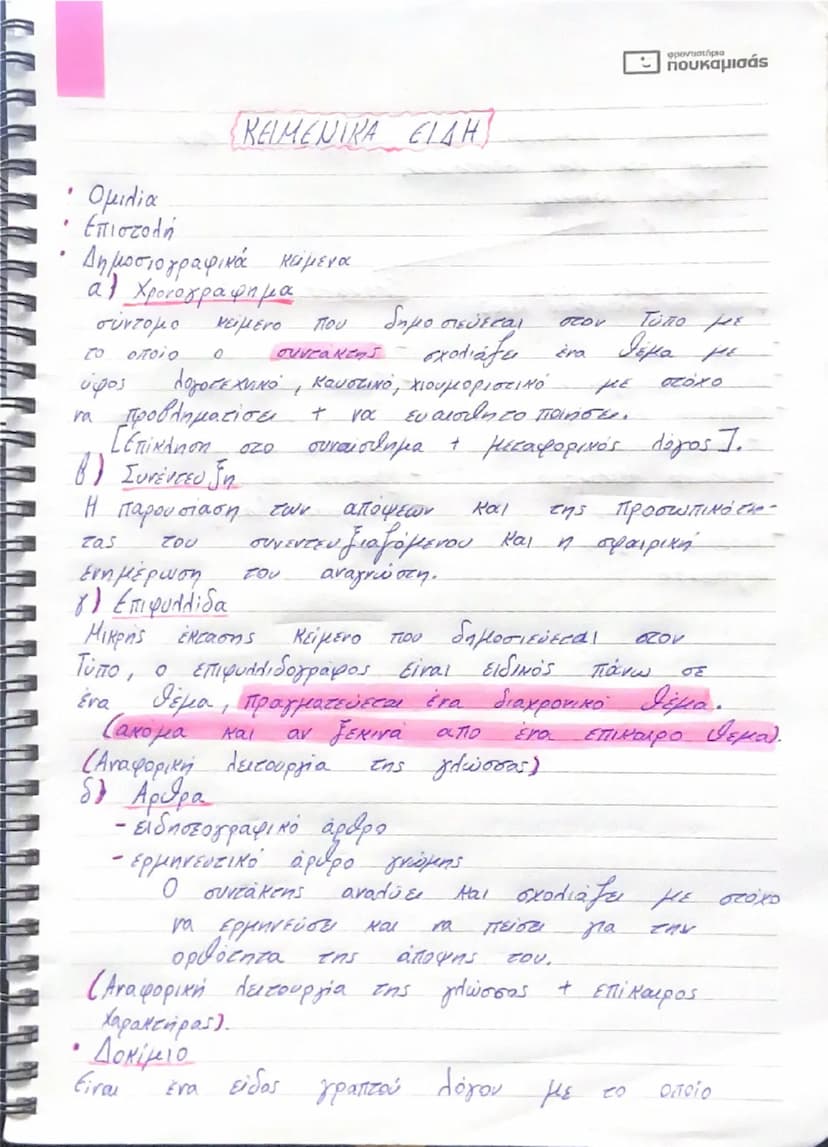 φροντιστήρια
πουκαμισάς
ΚΕΙΜΕΝΙΚΑ ΕΙΔΗ
• Ομιλία
• Επιστολή
• Δημοσιογραφικά κείμενα
α) Χρονογράφημα
σύντομο κείμενο που δημοσιεύεται στον Τύπο με
το οποίο ο συντάκτης σχολιάζει ένα θέμα με
ύφος λογοτεχνικό, καυστικό, χιουμοριστικό με στόχο
να προβληματίσει + να ευαισθητοποιήσει.
[Επίκληση στο συναίσθημα + μεταφορικός λόγος].
β) Συνέντευξη
Η παρουσίαση των απόψεων και της προσωπικότη-
τας του συνεντευξιαζόμενου και η σφαιρική
ενημέρωση του αναγνώστη.
γ) Επιφυλλίδα
Μικρής έκτασης κείμενο που δημοσιεύεται στον
Τύπο, ο επιφυλλιδογράφος είναι ειδικός πάνω σε
ένα θέμα, πραγματεύεται ένα διαχρονικό θέμα.
(ακόμα και αν ξεκινά από ένα επίκαιρο θέμα).
(Αναφορική λειτουργία της γλώσσας)
δ) Άρθρα
- ειδησεογραφικό άρθρο
- ερμηνευτικό άρθρο γνώμης
Ο συντάκτης αναλύει και σχολιάζει με στόχο
να ερμηνεύσει και να πείσει για την
ορθότητα της άποψης του.
(Αναφορική λειτουργία της γλώσσας + επίκαιρος
χαρακτήρας).
• Δοκίμιο
Είναι ένα είδος γραπτού λόγου με το οποίο